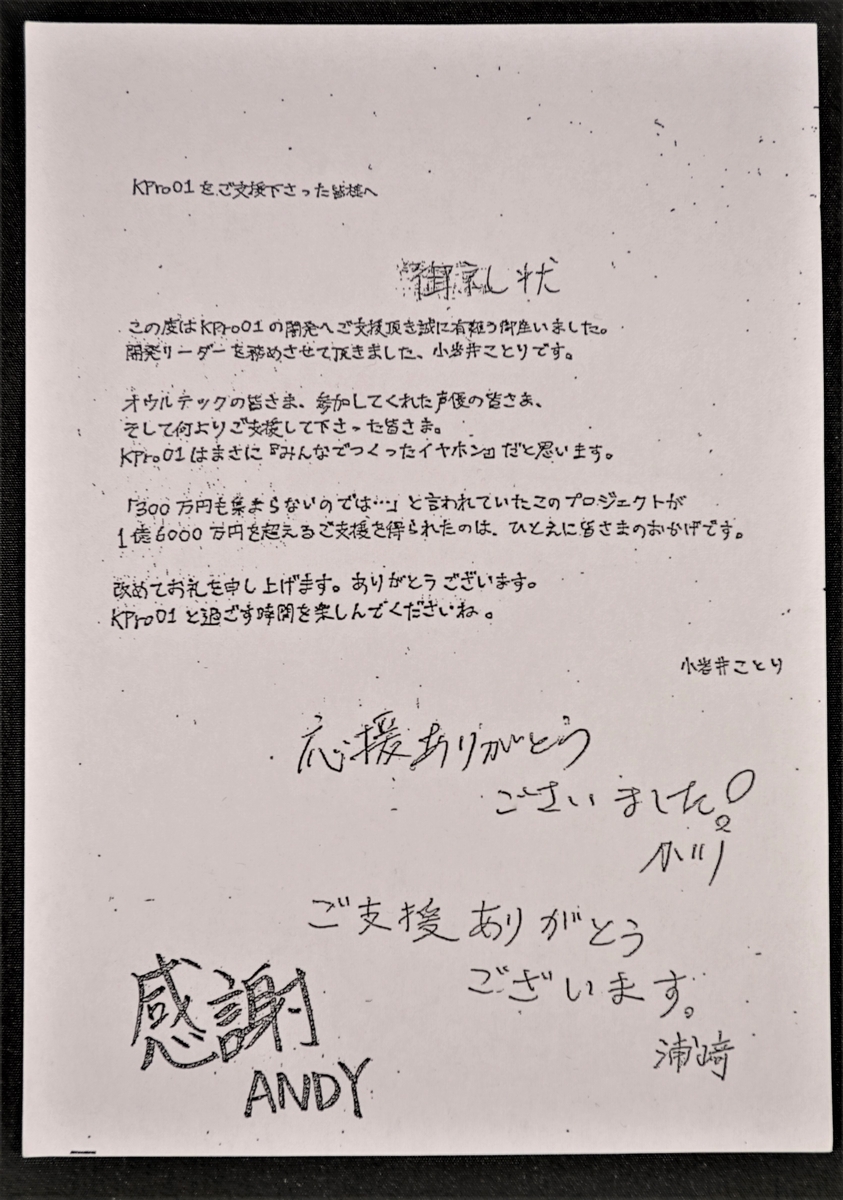 KPro01をご支援下さった皆様へ
御礼状
この度はKPro01の開発へご支援頂き誠に有難う御座いました。
開発リーダーを務めさせて頂きました、小岩井ことりです。
オウルテックの皆さま、参加してくれた声優の皆さま、
そして何よりご支援して下さった皆さま。
KPro01はまさに『みんなでつくったイヤホン』だと思います。
「300万円も集まらないのでは…」と言われていたこのプロジェクトが
1億6000万円を超えるご支援を得られたのは、ひとえに皆さまのおかげです。
改めてお礼を申し上げます。ありがとうございます。
KPro01と過ごす時間を楽しんでくださいね。
小岩井ことり
応援ありがとう
ございました!
ご支援ありがとう
ございます。
浦崎
感謝
ANDY